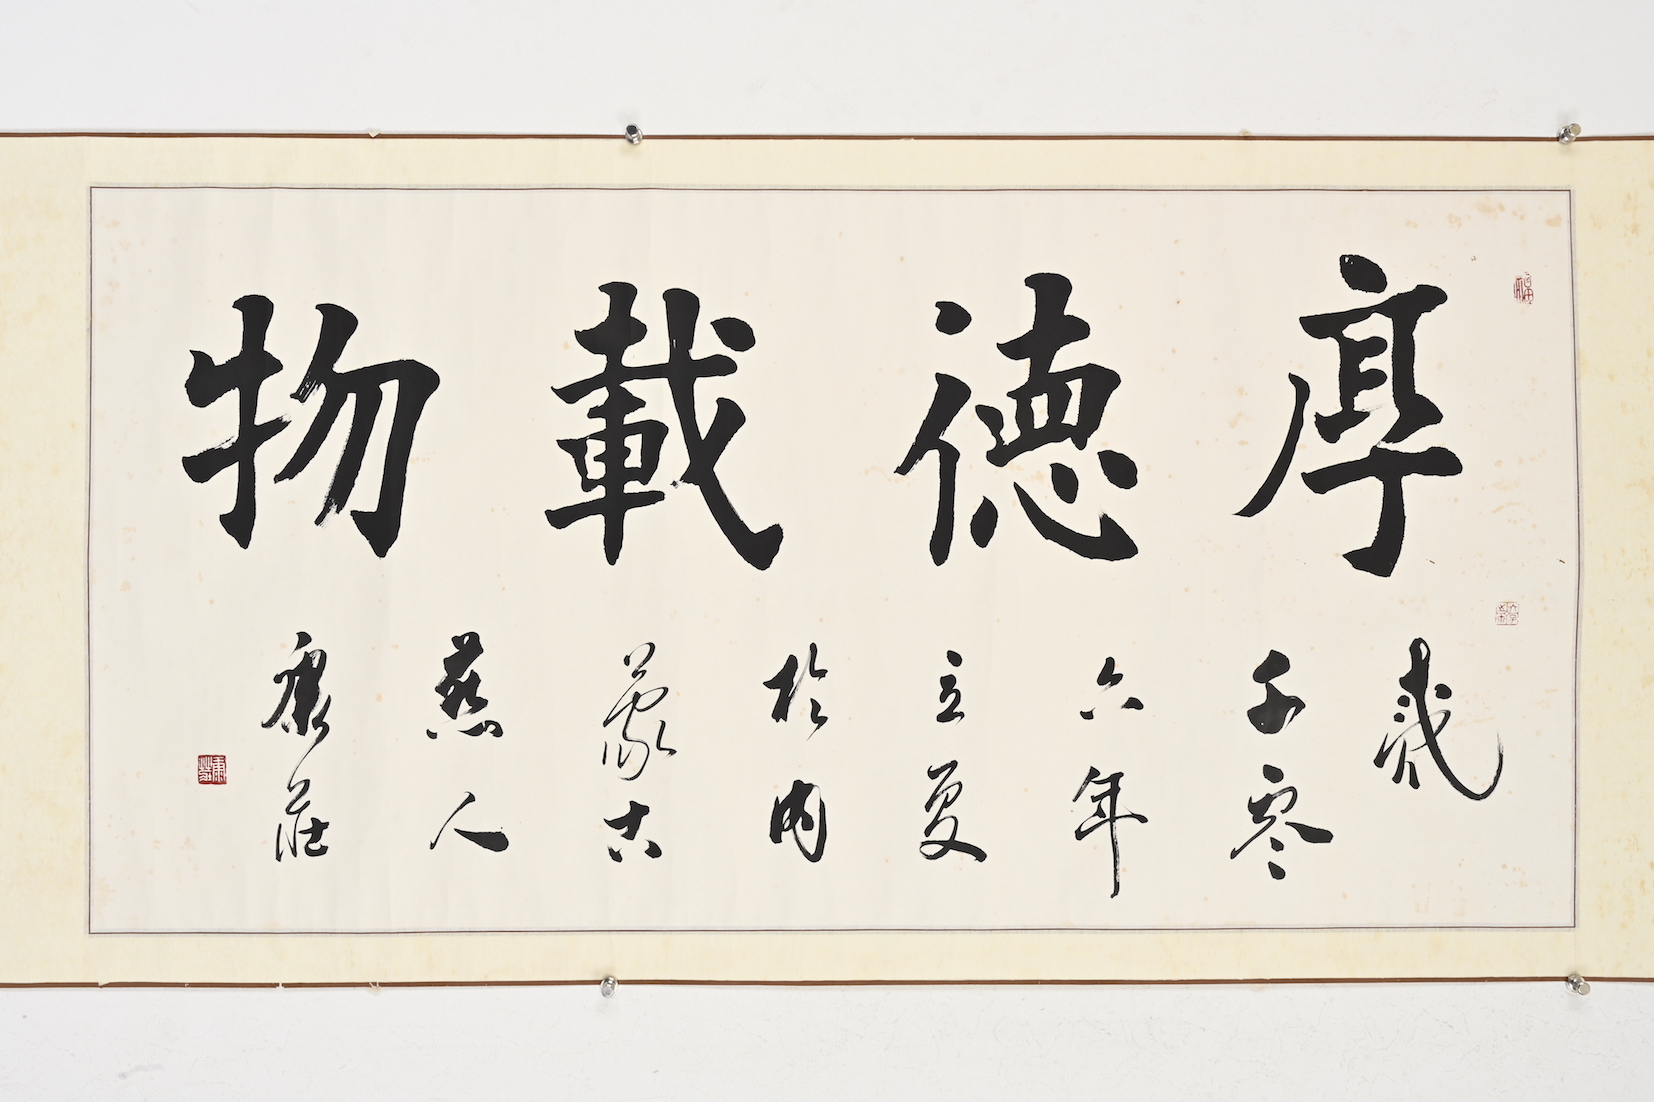 厚德載物
貳
千零
六年
立夏
於內
蒙古
燕人
康莊